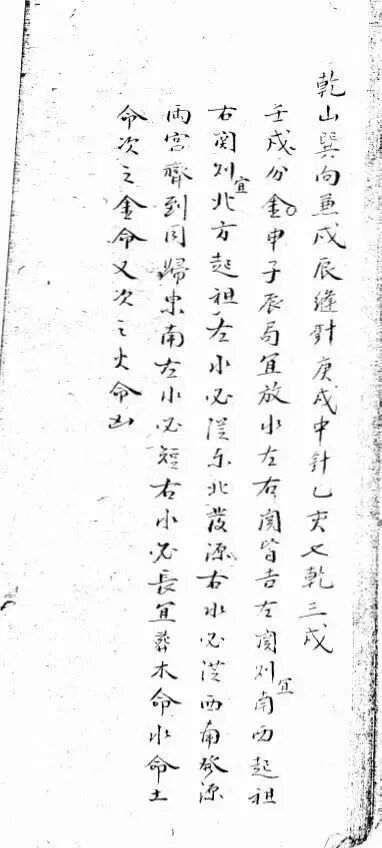 乾山巽向兼戌辰縫針庚戌中針乙亥七乾三戌
壬戌分金申子辰局宜放水左右関皆吉左関则宜南西起祖
右関则宜北方起祖左水必從东北發源右水必從西南發源
両宮齊到同歸東南左水必短右水必長宜葬木命水命土
命次之金命又次之火命凶